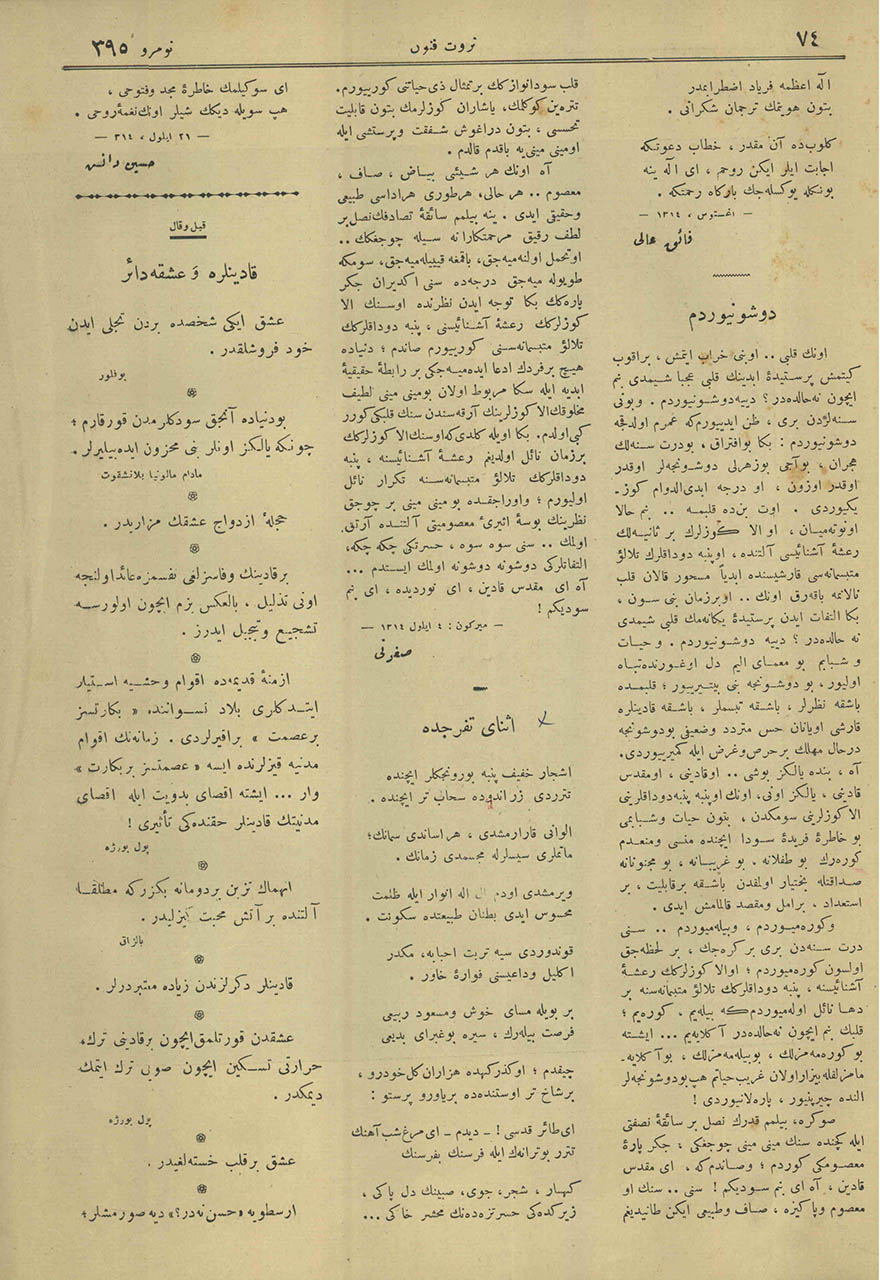 ٧٤
ثروت فنون
نومرو ٣٩٥
الله اعظمه فریاد اضطرابمدر
بتون هویتمك ترجمان شکرانی .
كلوب‌ده آن مقدر ، خطاب دعوتكه
اجابت ایلر ایكن روحم ، ای الٓه ینه
بونكله یوكسله‌جك بارگاه رحمتكه .
— اغستوس ، ١٣١٤ —
فائق عالی
دوشونیوردم
اونك قلبی .. اونی خراب ایتمش ، براقوب
كیتمش پرستیدهٔ ابدینك قلبی عجبا شیمدی بنم
ایچون نه حالده‌در؟ دییه دوشونیوردم . وبونی
سنه‌لردن بری ، ظن ایدییورم‌كه عمرم اولدقجه
دوشونیوردم : بكا بوافتراق ، بودرت سنه‌لك
هجران ، بوآجی بوزهرلی دوشونجه‌لر اوقدر
اوقدر اوزون ، او درجه ابدی‌الدوام كوز-
یكیوردی . اوت بن‌ده قلبمه .. بنم حالا
اونوته‌میان ، او الا كوزلرك بر ثانیه‌لك
رعشهٔ آشنائیسی آلتنده ، اوپنبه دوداقلرك تلالؤ
متبسمانه‌سی قارشیسنده ابدیاً مسحور قالان قلب
نالانمه باقه‌رق اونك .. اوبرزمان بنی سون ،
بكا التفات ایدن پرستیدهٔ یكانه‌مك قلبی شیمدی
نه حالده‌در ؟ دییه دوشونیوردم . و حیات
و شبابم بو معمای الیم دل اوغورنده‌تباه
اولیور ، بو دوشونجه بنی بیتیرییور ؛ قلبمده
باشقه نظرلر ، باشقه تبسملر ، باشقه قادینلره
قارشی اویانان حس متردد وضعیفی بودوشونجه
درحال مهلك برحرص وغرض ایله كمیرییوردی.
آه ، بنده یالكز بوشی .. اوقادینی ، اومقدس
قادینی ، یالكز اونی، اونك اوپنبه پنبه‌دوداقلرینی
الاكوزلرینی سومكدن ، بتون حیات وشبابمی
بو خاطرهٔ فریدهٔ سودا ایچنده منسی ومنعدم
كوره‌رك بو طفلانه . بو غریبانه ، بو مجنونانه
صداقتله بختیار اولمقدن باشقه برقابلیت ، بر
استعداد ، برامل ومقصد قالمامش ایدی .
وكوره‌میوردم ، وبیله‌میوردم .. سنی
درت سنه‌دن بری بركره‌جك ، بر لحظه‌جق
اولسون كوره‌میوردم ؛ اوالا كوزلركك رعشهٔ
آشنائیسنه ، پنبه دوداقلركك تلالؤ متبسمانه‌سنه بر
دها نائل اوله‌میوردم‌كه بیله‌یم ، كوره‌یم ؛
قلبك بنم ایچون نه‌حالده‌در آكلایه‌یم ... ایشته
بو كوره‌مه‌مزلك ، بوبیله‌مه‌مزلك ، بوآكلایه-
مامزلقله‌بیزار اولان غریب حیاتم هپ بودوشونجه‌لر
النده چیرپنیور ، پاره‌لانیوردی !
صوكره، بیلمم قدرك نصل بر سائقهٔ نصفتی
ایله كچنده سنك مینی مینی چوجغكی ، جكر پارهٔ
معصومكی كوردم ؛ وصاندم‌كه ، ای مقدس
قادین ، آه ای بنم سودیكم ! سنی .. سنك او
معصوم وپاكیزه ، صاف وطبیعی ایكن طانیدیغم
قلب سودانوازكك برتمثال ذی‌حیاتنی كورییورم.
تتره‌ین كوكلك، یاشاران كوزلرمك بتون قابلیت
تحسسی ، بتون دراغوش شفقت وپرستشی ایله
اومینی مینی‌یه باقدم قالدم .
آه اونك هر شیئی بیاض ، صاف ،
معصوم .. هر حالی، هرطوری هراداسی طبیعی
وحقیقی ایدی . ینه بیلمم سائقهٔ تصادفك نصل‌بر
لطف رقیق مرحمتكارانه سیله چوجغكك ..
اوتحمل اولنه‌میه‌جق، باقمغه قیییله‌میه‌جق، سومكه
طویوله میه‌جق درجه‌ده سنی اكدیران جكر
پاره‌كك بكا توجه ایدن نظرنده اوسنك الا
كوزلركك رعشهٔ آشنائیسنی ، پنبه دوداقلركك
تلالؤ متبسمانه‌سنی كورییورم صاندم ؛ دنیاده
هیچ برفردك ادعا ایده‌میه‌جكی بر رابطهٔ حقیقیهٔ
ابدیه ایله سكا مربوط اولان بومینی مینی لطیف
مخلوقك‌الا كوزلرینك آرقه‌سندن سنك قلبكی‌كورر
كبی‌اولدم. بكا اویله كلدی‌كه‌اوسنك‌الا كوزلركك
برزمان نائل اولدیغم رعشهٔ آشنائیسنه ، پنبه
دوداقلركك تلالؤ متبسمانه‌سنه تكرار نائل
اولیورم ؛ واوراجقده بو مینی مینی بر چوجق
نظرینك بوسهٔ اثیریٔ معصومیتی آلتنده آرتق
اولمك .. سنی سوه سوه ، حسرتكی چكه چكه،
التفاتلركی دوشونه دوشونه اولمك ایستدم ...
آه ای مقدس قادین ، ای نوردیده ، ای بنم
سودیكم !
— میركون : ٤ ایلول ١٣١٤ —
صفوتی
اثنای تفرجده
اشجار خفیف پنبه بورونجكلر ایچنده
تترردی زراندوده سحاب تر ایچنده .
الوانی قارارمشدی ، هر اساندی سمانك؛
ماتملری سیسلرله تجسمدی زمانك .
ویرمشدی اودم ال اله انوار ایله ظلمت
محسوس ایدی بطنان طبیعتده سكونت .
قوندوردی سیه تربت احبابه، مكدر
اكلیل وداعیسنی فوارهٔ خاور .
بر بویله مسای خوش ومسعود ربیعی
فرصت بیله‌رك، سیره بوغبرای بدیعی
چیقدم ؛ اوكذركهده هزاران‌كل‌خودرو ،
برشاخ تر اوستنده‌ده بریاورو پرستو :
ای‌طائر قدسی ! — دیدم — ای‌مرغ‌شب‌آهنك
تترر بوترانه‌ك ایله فرسنك بفرسنك
كهسار ، شجر، جوی، صبینك دل پاكی ،
زیركده‌كی حسرتزده‌نك محشر خاكی ...
ای سوكیلمك خاطرهٔ مجد وفتوحی ،
هپ سویله دیكك شیلر اونك‌نغمهٔ‌روحی .
— ٢١ ایلول ، ٣١٤ —
حسین دانش
قیل وقال
قادینلره و عشقه‌دائر
عشق ایكی شخصده بردن تجلی ایدن
خود فروشلقدر .
بوفلور
بودنیاده آنجق سودكلرمدن قورقارم ؛
چونكه یالكز اونلر بنی محزون ایده‌بیلیرلر .
مادام مالونیا بلانشقوت
حجلهٔ ازدواج عشقك مزاریدر .
برقادینك وفاسزلغی نفسمزه‌عائداولنجه
اونی تذلیل ، بالعكس بزم ایچون اولورسه
تشجیع وتبجیل ایدرز .
ازمنهٔ قدیمه‌ده اقوام وحشیه استیلا
ایتدكلری بلاد نسواننده « بكارتسز
برعصمت » براقیرلردی . زمانه‌نك اقوام
مدنیه قیزلرنده ایسه « عصمتسز بربكارت »
وار ... ایشته اقصای بدویت ایله اقصای
مدنیتك قادینلر حقنده‌كی تأثیری !
پول بورژه
انهماك تزین بردومانه بكزركه مطلقا
آلتنده بر آتش محبت كیزلیدر .
بالزاق
قادینلر دكرلرندن زیاده معتبردرلر .
عشقدن قورتلمق‌ایچون برقادینی ترك،
حرارتی تسكین ایچون صویی ترك ایتمك
دیمكدر .
پول بورژه
عشق بر قلب خسته‌لغیدر .
ارسطویه «حسن نه‌در؟» دیه صورمشلر؛